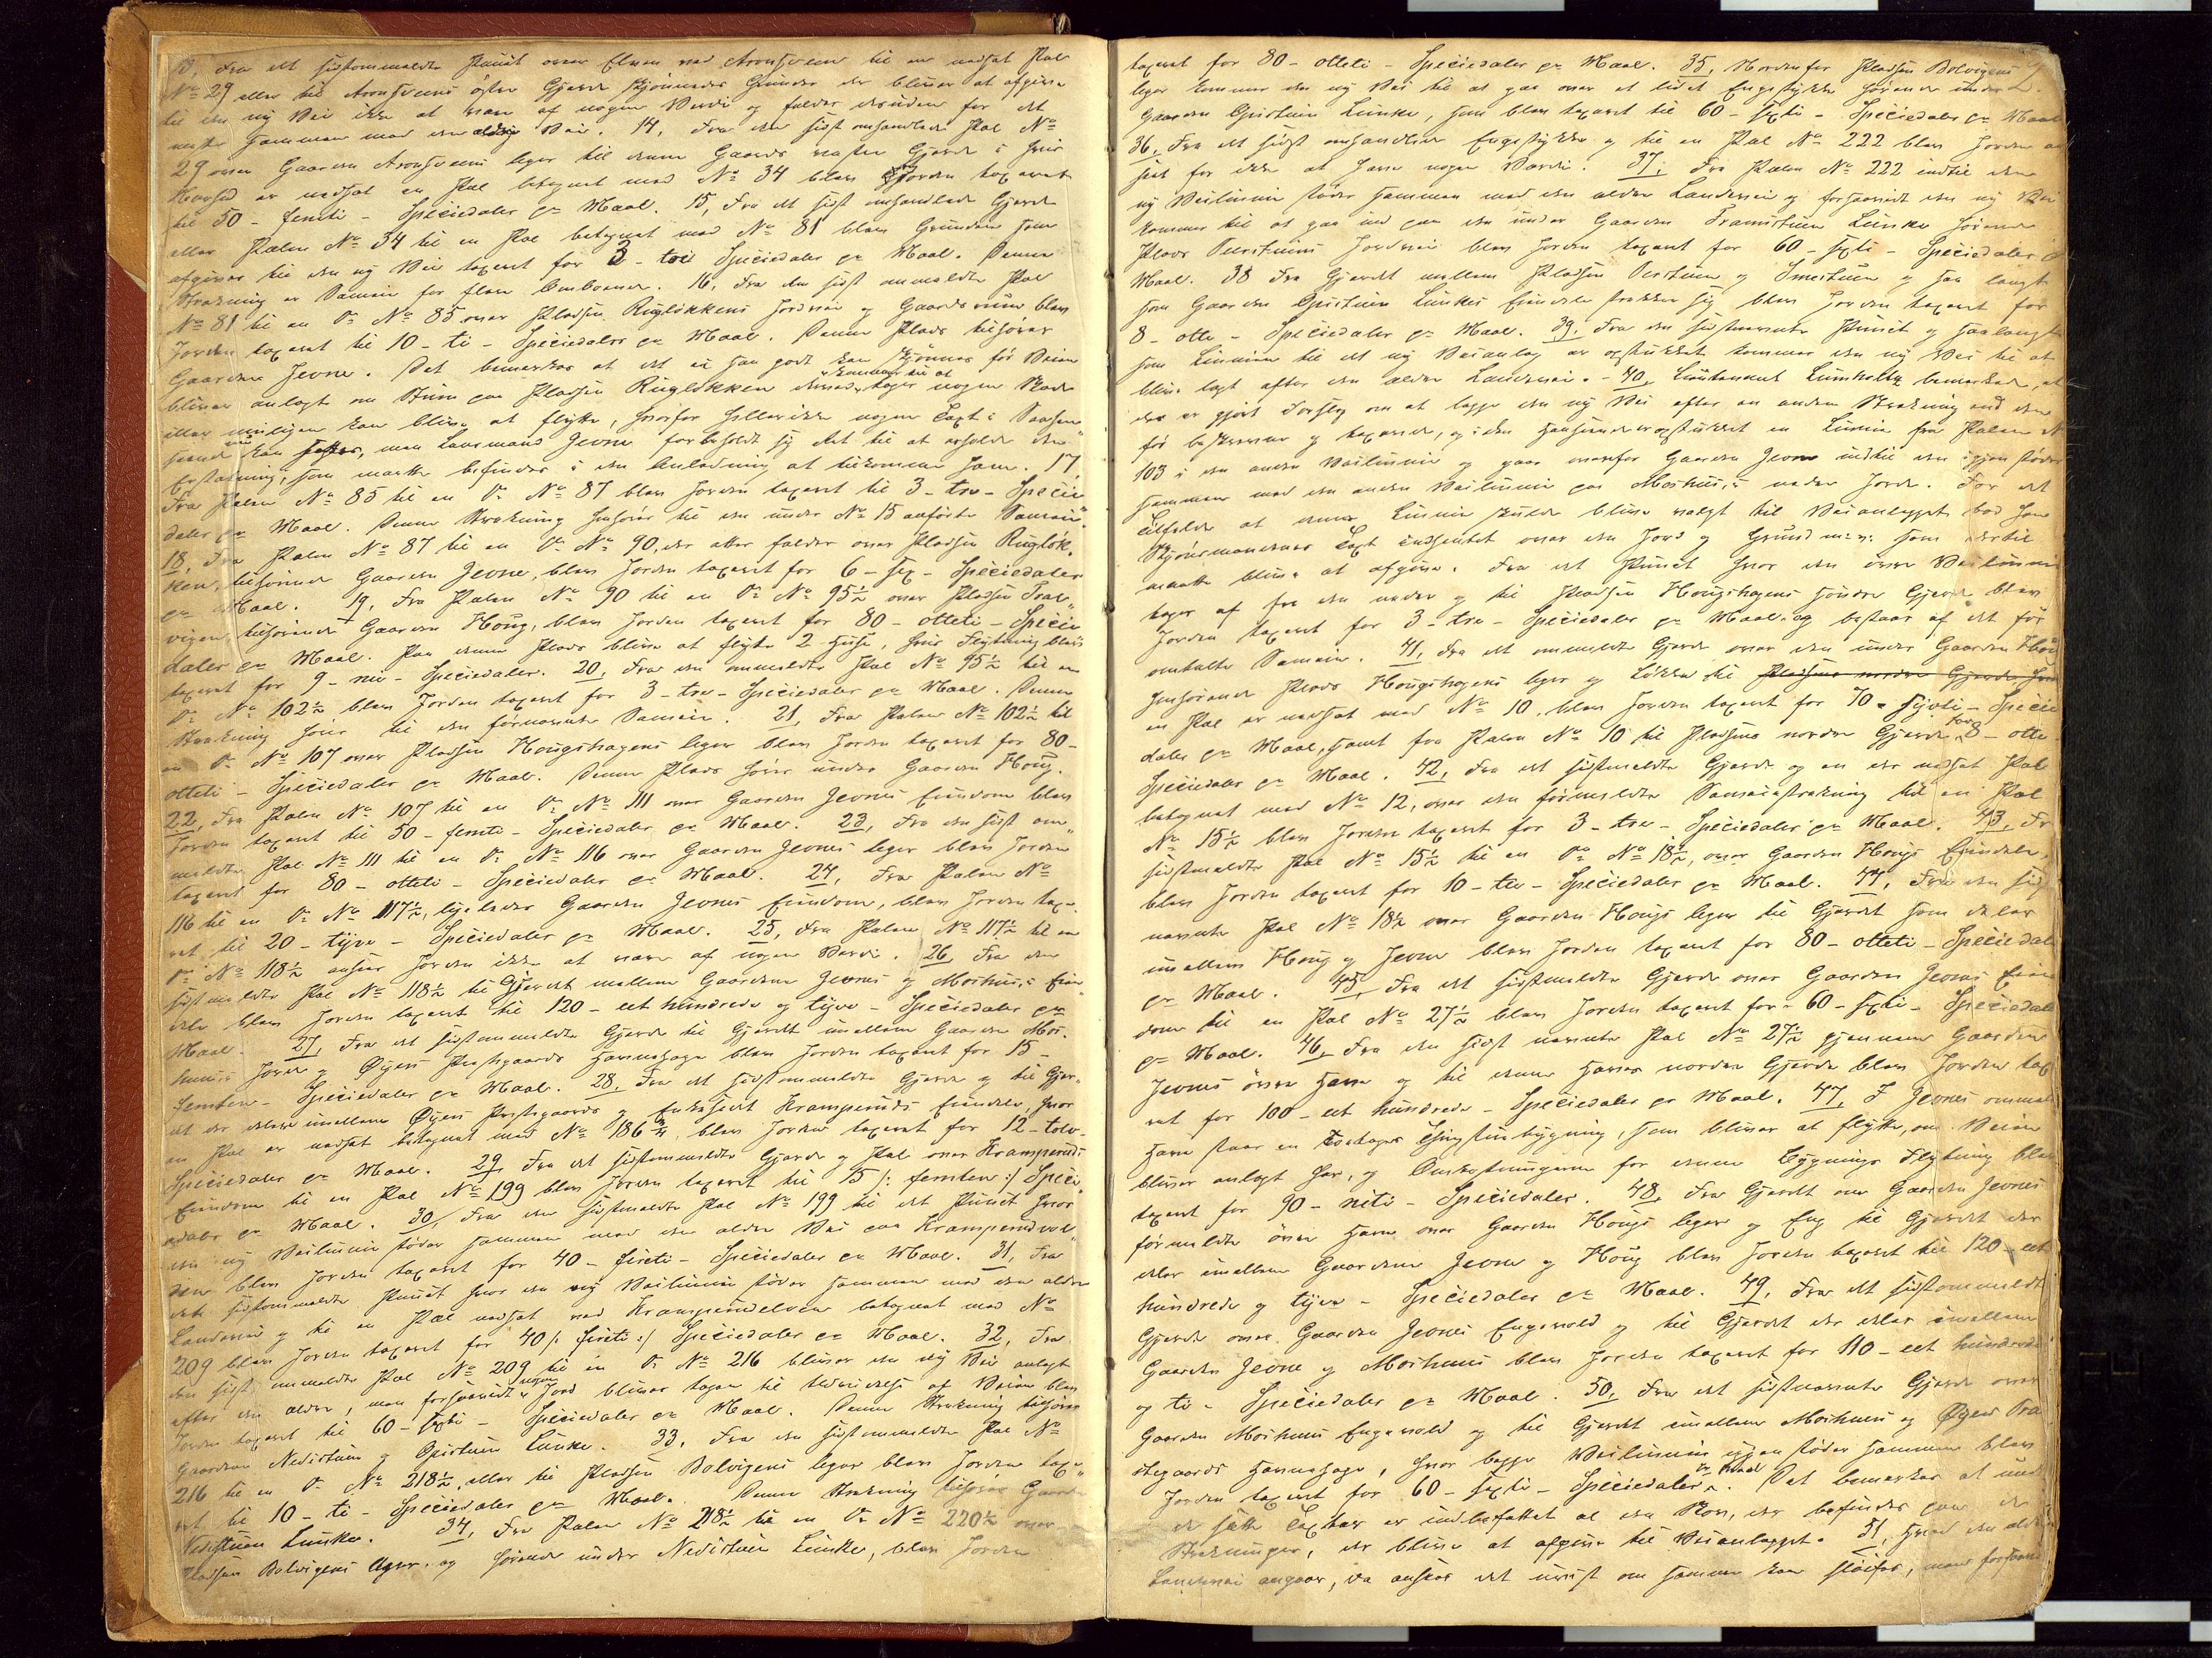 13, Fra det sidstommeldte Punct over Elven ved Aronsveen til en nedsat Pæl
No 29 eller til Aronsveens østre Gjerde skjønnedes Grunden der bliver at afgive
til den ny Vei ikke at være af nogen Værdi og falder desuden for det
meste sammen med den ældre Vei. 14, Fra den sidst omhandlede Pæl No
29 over Gaarden Aronsveens leger til denne Gaards vestre Gjerde i hvis
Nærhed er nedsat en Pæl betegnet med No 34 blev Jorden taxeret
til 50 - femti - Speciedaler pr Maal. 15, Fra det sidst omhandlede Gjerde
eller Pælen No 34 til en Pæl betegnet med No 81 blev Grunden som
afgives til den ny Vei taxeret for 3 - tre Speciedaler pr Maal. Denne
Strækning er Sameie for flere Opsiddere. 16, Fra den sidst ommeldte Pæl
No 81 til en Do No 85 over Pladsen Rugløkkens Jordvei og Gaardsrum blev
Jorden taxeret til 10 - ti - Speciedaler pr Maal. Denne Plads tilhører
Gaarden Jevne. Det bemærkes at det ei saa godt kan skjønnes før Veien
bliver anlagt om Stuen paa Pladsen Rugløkken derved kommer til at tage nogen Skade
eller muligen kan blive at flytte, hvorfor heller ikke nogen Taxt i saa
kan sættes, men Lensmand Jevne forbeholdt sig Ret til at erholde den
Erstatning, som maatte befindes i den Anledning at tilkomme ham. 17,
Fra Pælen No 85 til en Do No 87 blev Jorden taxeret til 3 - tre - Specie
daler pr Maal. Denne Strækning henhører til den under No 15 anførte Sameie.
18, Fra Pælen No 87 til en Do No 90, der atter falder over Pladsen Ruglök-
ken, tilhørende Gaarden Jevne, blev Jorden taxeret for 6 - sex - Speciedaler
pr Maal. 19, Fra Pælen No 90 til en Do No 95½ over Pladsen
vigen, tilhørende Gaarden Houg, blev Jorden taxeret for 80 - otteti - Specie
daler pr Maal. Paa denne Plads bliver at flytte 2 Huse, hvis Flytning blev
taxeret for 9 - ni - Speciedaler. 20, Fra den ommeldte Pæl No 95½ til en
Do No 102½ blev Jorden taxeret for 3 - tre - Speciedaler pr Maal. Denne
Strækning hører til den førnævnte Sameie. 21, Fra Pælen No 102½ til
en Do No 107 over Pladsen Hougshagens leger blev Jorden taxeret for 80 -
otteti - Speciedaler pr Maal. Denne Plads hører under Gaarden Houg.
22, Fra Pælen No 107 til en Do No 111 over Gaarden Jevnes Eiendom blev
Jorden taxeret til 50 - femti - Speciedaler pr Maal. 23, Fra den sidst om-
meldte Pæl No 111 til en Do No 116 over Gaarden Jevnes leger blev Jorden
taxeret for 80 - otteti - Speciedaler pr Maal. 24, Fra Pælen No
116 til en Do No 117½, ligeledes Gaarden Jevnes Eiendom, blev Jorden taxe-
ret til 20 - tyve - Speciedaler pr Maal. 25, Fra Pælen No 117½ til en
Do No 118½ ansees Jorden ikke at være af nogen Værdi. 26, Fra den
sidstmeldte Pæl No 118½ til Gjerdet mellem Gaardene Jevnes og Moshuus's Eien-
dele blev Jorden taxeret til 120 - eet hundrede og tyve - Speciedaler pr
Maal. 27, Fra det sidstommeldte Gjerde til Gjerdet imellem Gaarden Mos-
huus's Jorde og Øyers Prestgaards Havnehage blev Jorden taxeret for 15 -
femten - Speciedaler pr Maal. 28, Fra det sidstommeldte Gjerde og til Gjer-
det der deler imellem Øyers Prestegaards og Enkesædet Kramperuds Eiendele, hvor
en Pæl er nedsat betegnet med No 186¾, blev Jorden taxeret for 12 - tolv -
Speciedaler pr Maal. 29, Fra det sidstommeldte Gjerde og Pæl over Kramperuds
Eiendom til en Pæl No 199 blev Jorden taxeret til 15 /: femten :/ Speci-
edaler pr Maal. 30, Fra den sidstmeldte Pæl No 199 til det Punct hvor
den ny Veilinnie støder sammen med den ældre Vei paa Kramperudvol-
den blev Jorden taxeret for 40 - fireti - Speciedaler pr Maal. 31, Fra
det sidstommeldte Punct hvor den ny Veilinnie støder sammen med den ældre
Landevei og til en Pæl nedsat ved Kramperudelven betegnet med No
209 blev Jorden taxeret for 40 /: fireti :/ Speciedaler pr Maal. 32, Fra
den sidst ommeldte Pæl No 209 til en Do No 216 bliver den ny Vei anlagt
efter den ældre, men forsaavidt nogen Jord bliver tagen til Udvidelse af Veien blev
Jorden taxeret til 60 - sexti - Speciedaler pr Maal. Denne Strækning tilhører
Gaardene Nedistuen og Opistuen Lunke. 33, Fra den sidstommeldte Pæl No
216 til en Do No 218½, eller til Pladsen Bolvigens leger blev Jorden taxe-
ret til 10 - ti - Speciedaler pr Maal. Denne Strækning tilhører Gaarden
Nedistuen Lunke. 34, Fra Pælen No 218½ til en Do No 220½ over
Pladsen Bolvigens Ager og hørende under Nedistuen Lunke, blev Jorden
taxeret for 80 - otteti - Speciedaler pr Maal. 35, Nordenfor Pladsen Bolvigens
leger kommer den ny Vei til at gaa over et lidet Engestykke hørende under
Gaarden Opistuen Lunke, som blev taxeret til 60 - sexti - Speciedaler pr Maal
36, Fra det sidst omhandlede Engestykke og til en Pæl No 222 blev Jorden an
seet for ikke at have nogen Værdi. 37, Fra Pælen No 222 indtil den
ny Veilinnie støder sammen med den ældre Landevei og forsaavidt den ny Vei
kommer til at gaa ind paa den under Gaarden Framistuen Lunke hørende
Plads Perstuens Jordvei blev Jorden taxeret for 60 - sexti - Speciedaler pr
Maal. 38 Fra Gjerdet mellem Pladsen Perstuen og Smestuen og saa langt
som Gaarden Opistuen Lunkes Eiendele strækker sig blev Jorden taxeret for
8 - otte - Speciedaler pr Maal. 39, Fra den sidstnævnte Punct og saalangt
som Linnien til det ny Veianlæg er opstukket kommer den ny Vei til at
blive lagt efter den ældre Landevei. - 40, Lieutenant Lumholtz bemærkede, at
der er gjort Forslag om at lægge den ny Vei efter en anden Strækning end den
før beskrevne og taxerede, og i den Henseende er opstukket en Linnie fra Pælen No
103 i den anden Veilinnie og gaar ovenfor Gaarden Jevne indtil den igjen støder
sammen med den anden Veilinnie paa Moshuus's nedre Jorde. For det
Tilfælde at denne Linnie skulde blive valgt til Veianlægget bad han
Skjønsmændenes Taxt indhentet over den Jord og Grund m. v. som dertil
maatte blive at afgive. Fra det Punct hvor den øvre Veilinnie
tager af fra den nedre og til Pladsen Hougshagens søndre Gjerde blev
Jorden taxeret for 3 - tre - Speciedaler pr Maal og bestaar af det før
omtalte Sameie. 41, Fra det ommeldte Gjerde over den under Gaarden Houg
henhørende Plads Hougshagens leger og Løkke til Pladsens nordre Gjerde hvor
en Pæl er nedsat med No 10, blev Jorden taxeret for 70 - syvti - Specie
daler pr Maal, samt fra Pælen No 10 til Pladsens nordre Gjerde for 8 - otte
Speciedaler pr Maal. 42, Fra det sidstmeldte Gjerde og en der nedsat Pæl
betegnet med No 12, over den førmeldte Sameiestrækning til en Pæl
No 15½ blev Jorden taxeret for 3 - tre - Speciedaler pr Maal. 43, Fr
sidstmeldte Pæl No 15½ til en Do No 18½, over Gaarden Hougs Eiendele,
blev Jorden taxeret for 10 - tie - Speciedaler pr Maal. 44, Fra den sidst
nævnte Pæl No 18½ over Gaarden Hougs leger til Gjerdet som deler
imellem Houg og Jevne blev Jorden taxeret for 80 - otteti - Speciedal
pr Maal. 45, Fra det sidstmeldte Gjerde over Gaarden Jevnes Eien
dom til en Pæl No 27½ blev Jorden taxeret for 60 - sexti - Speciedale
pr Maal. 46, Fra den sidst nævnte Pæl No 27½ gjennem Gaarden
Jevnes øvre Have og til denne Haves nordre Gjerde blev Jorden taxe
ret for 100 - eet hundrede - Speciedaler pr Maal. 47, I Jevnes ommeldte
Have staar en toetages bygning, som bliver at flytte, om Veien
bliver anlagt her, og Omkostningerne for denne Bygnings Flytning blev
taxeret for 90 - niti - Speciedaler. 48, Fra Gjerdet om Gaarden Jevnes
førmeldte øvre Have over Gaarden Hougs leger og Eng til Gjerdet der
deler imellem Gaardene Jevne og Houg blev Jorden taxeret til 120 - eet
hundrede og tyve - Speciedaler pr Maal. 49, Fra det sidstommeldte
Gjerde over Gaarden Jevnes Engevold og til Gjerdet der deler imellem
Gaarden Jevne og Moshuus blev Jorden taxeret for 110 - eet hundrede
og ti - Speciedaler pr Maal. 50, Fra det sidstnævnte Gjerde over
Gaarden Moshuus Engevold og til Gjerdet imellem Moshuus og Øyers Præ
stegaards Havnehage, hvor begge Veilinnier igjen støder sammen blev
Jorden taxeret for 60 - sexti - Speciedaler pr Maal. Det bemærkes at und
de satte Taxter er indbefattet al den Skov, der befindes paa de
Strækninger, der blive at afgive til Veianlægget. 51, Hvad den ældre
Landevei angaar, da ansees det uvist om samme kan sløifes, men forsaavi